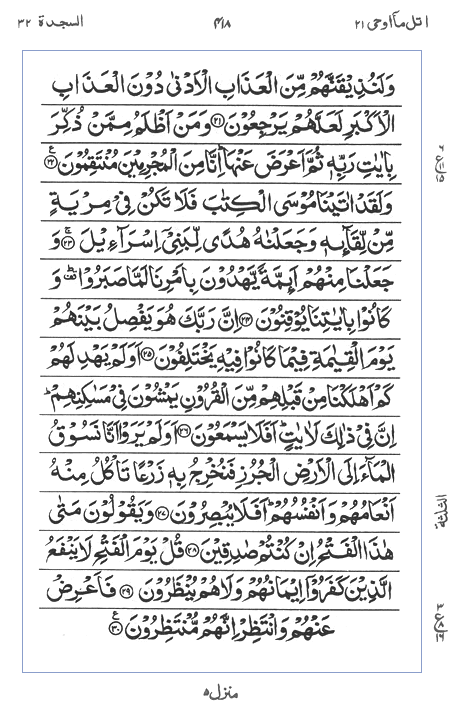 اتل مآ اوحی ۲۱ ۴۱۸ السجدة ۳۲
وَلَنُذِيْقَنَّهُمْ مِّنَ الْعَذَابِ الْاَدْنٰى دُوْنَ الْعَذَابِ
الْاَكْبَرِ لَعَلَّهُمْ يَرْجِعُوْنَ ﴿۲۱﴾ وَمَنْ اَظْلَمُ مِمَّنْ ذُكِّرَ
بِاٰيٰتِ رَبِّهٖ ثُمَّ اَعْرَضَ عَنْهَا ؕ اِنَّا مِنَ الْمُجْرِمِيْنَ مُنْتَقِمُوْنَ ﴿۲۲﴾ ع
وَلَقَدْ اٰتَيْنَا مُوْسَى الْكِتٰبَ فَلَا تَكُنْ فِيْ مِرْيَةٍ
مِّنْ لِّقَآئِهٖ وَجَعَلْنٰهُ هُدًى لِّبَنِيْۤ اِسْرَآءِيْلَ ﴿۲۳﴾ وَ
جَعَلْنَا مِنْهُمْ اَئِمَّةً يَّهْدُوْنَ بِاَمْرِنَا لَمَّا صَبَرُوْا ؕ وَ
كَانُوْا بِاٰيٰتِنَا يُوْقِنُوْنَ ﴿۲۴﴾ اِنَّ رَبَّكَ هُوَ يَفْصِلُ بَيْنَهُمْ
يَوْمَ الْقِيٰمَةِ فِيْمَا كَانُوْا فِيْهِ يَخْتَلِفُوْنَ ﴿۲۵﴾ اَوَلَمْ يَهْدِ لَهُمْ
كَمْ اَهْلَكْنَا مِنْ قَبْلِهِمْ مِّنَ الْقُرُوْنِ يَمْشُوْنَ فِيْ مَسٰكِنِهِمْ ؕ
اِنَّ فِيْ ذٰلِكَ لَاٰيٰتٍ ؕ اَفَلَا يَسْمَعُوْنَ ﴿۲۶﴾ اَوَلَمْ يَرَوْا اَنَّا نَسُوْقُ
الْمَآءَ اِلَى الْاَرْضِ الْجُرُزِ فَنُخْرِجُ بِهٖ زَرْعًا تَاْكُلُ مِنْهُ
اَنْعَامُهُمْ وَاَنْفُسُهُمْ ؕ اَفَلَا يُبْصِرُوْنَ ﴿۲۷﴾ وَيَقُوْلُوْنَ مَتٰى
هٰذَا الْفَتْحُ اِنْ كُنْتُمْ صٰدِقِيْنَ ﴿۲۸﴾ قُلْ يَوْمَ الْفَتْحِ لَا يَنْفَعُ
الَّذِيْنَ كَفَرُوْۤا اِيْمَانُهُمْ وَلَا هُمْ يُنْظَرُوْنَ ﴿۲۹﴾ فَاَعْرِضْ
عَنْهُمْ وَانْتَظِرْ اِنَّهُمْ مُّنْتَظِرُوْنَ ﴿۳۰﴾ ع
الثلثة
منزل ۵